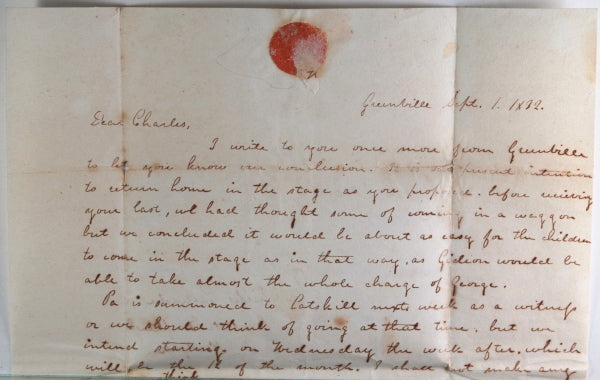 Greenville Sept. 1. 1832.
Dear Charles,
I write to you once more from Greenville
to let you know our conclusion. It is our present intention
to return home in the stage as you propose. before receiving
your last, we had thought some of coming in a waggon
but we concluded it would be about as easy for the children
to come in the stage as in that way, as Gideon would be
able to take almost the whole charge of George.
Pa is summoned to Catskill next week as a witness
or we should think of going at that time. but we
intend starting on Wednesday the week after, which
will be the 12 of the month. I shall not make any